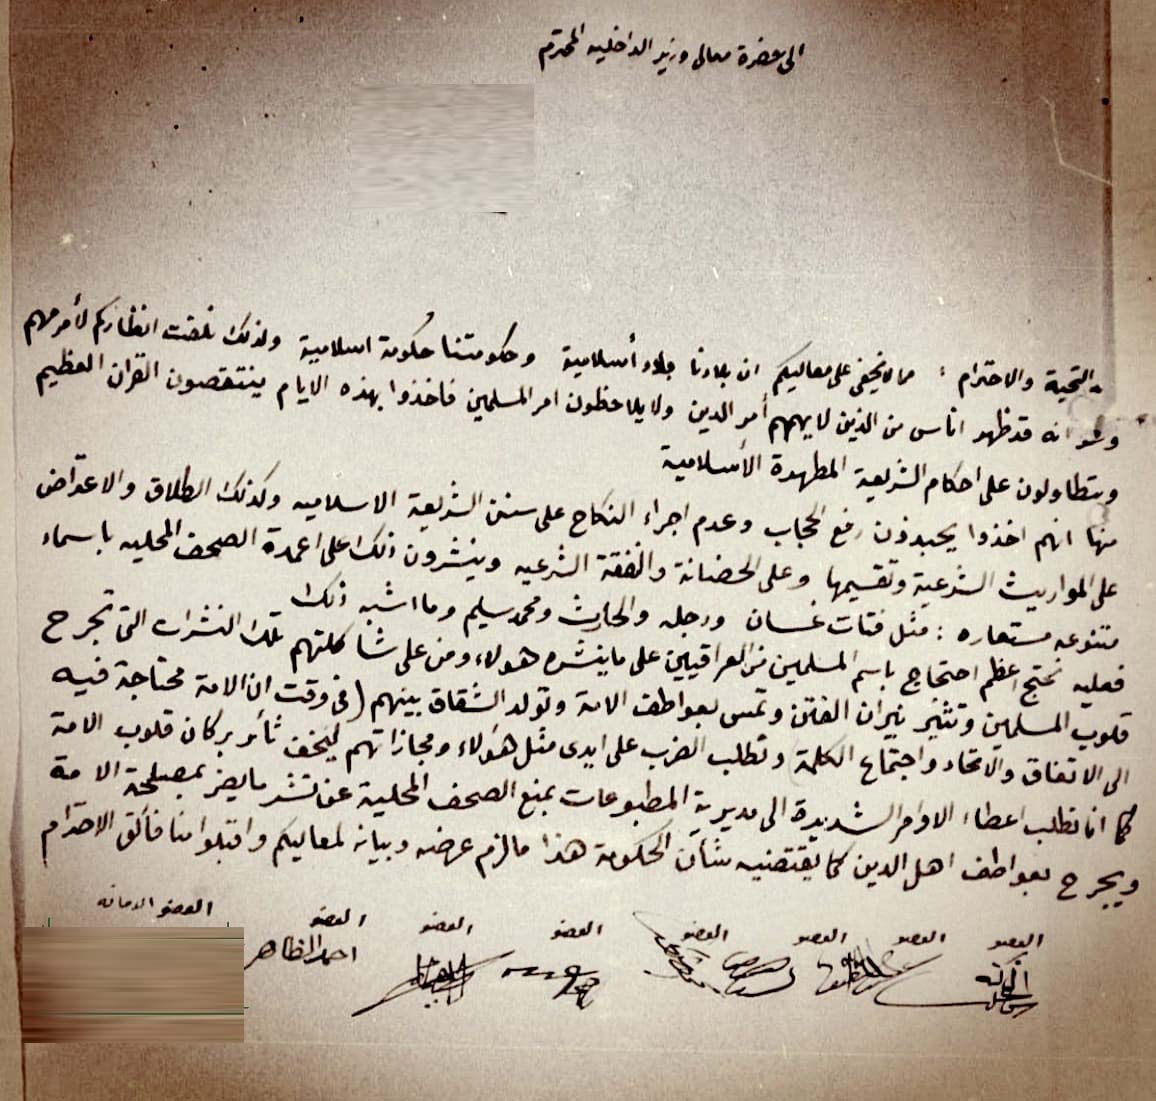 الى حضرة معالى وزير الداخليه المحترم
التحية والاحترام : مما لا يخفى على معاليكم ان بلادنا بلاد أسلامية وحكومتنا حكومة اسلامية ولذلك نلفت انظاركم لأمر مهم
وهو انه قد ظهر اناس من الذين لا يهمهم أمر الدين ولا يلاحظون امر المسلمين فاخذوا بهذه الايام ينتقصون القران العظيم
ويتطاولون على احكام الشريعة المطهرة الأسلامية
منها انهم اخذوا يحبذون رفع الحجاب وعدم اجراء النكاح على سنن الشريعة الاسلاميه وكذلك الطلاق والاعتراض
على المواريث الشرعية وتقسيمها وعلى الحضانة والنفقة الشرعيه وينشرون ذلك على اعمدة الصحف المحليه باسماء
متنوعه مستعاره : مثل فتات غسان ورجله والحارث ومحمد سليم وما اشبه ذلك
فعليه نحتج اعظم احتجاج باسم المسلمين من العراقيين على ما ينشره هولاء ومن على شاكلتهم تلك النشرات التى تجرح
قلوب المسلمين وتثير نيران الفتن وتمس بعواطف الامة وتولد الشقاق بينهم (فى وقت ان الامة محتاجة فيه
الى الاتفاق والاتحاد واجتماع الكلمة ونطلب الضرب على ايدى مثل هؤلاء ومجازاتهم ليخف ثأئر بركان قلوب الامة
كما اننا نطلب اعطاء الاوامر الشديدة الى مديرية المطبوعات بمنع الصحف المحلية عن نشر ما يضر بمصلحة الامة
ويجرح بعواطف اهل الدين كما يقتضيه شأن الحكومة هذا ما لزم عرضه وبيانه لمعاليكم واقبلوا منا فائق الاحترام
العضو العضو العضو العضو العضو العضو العضو العضو
احمد الظاهر